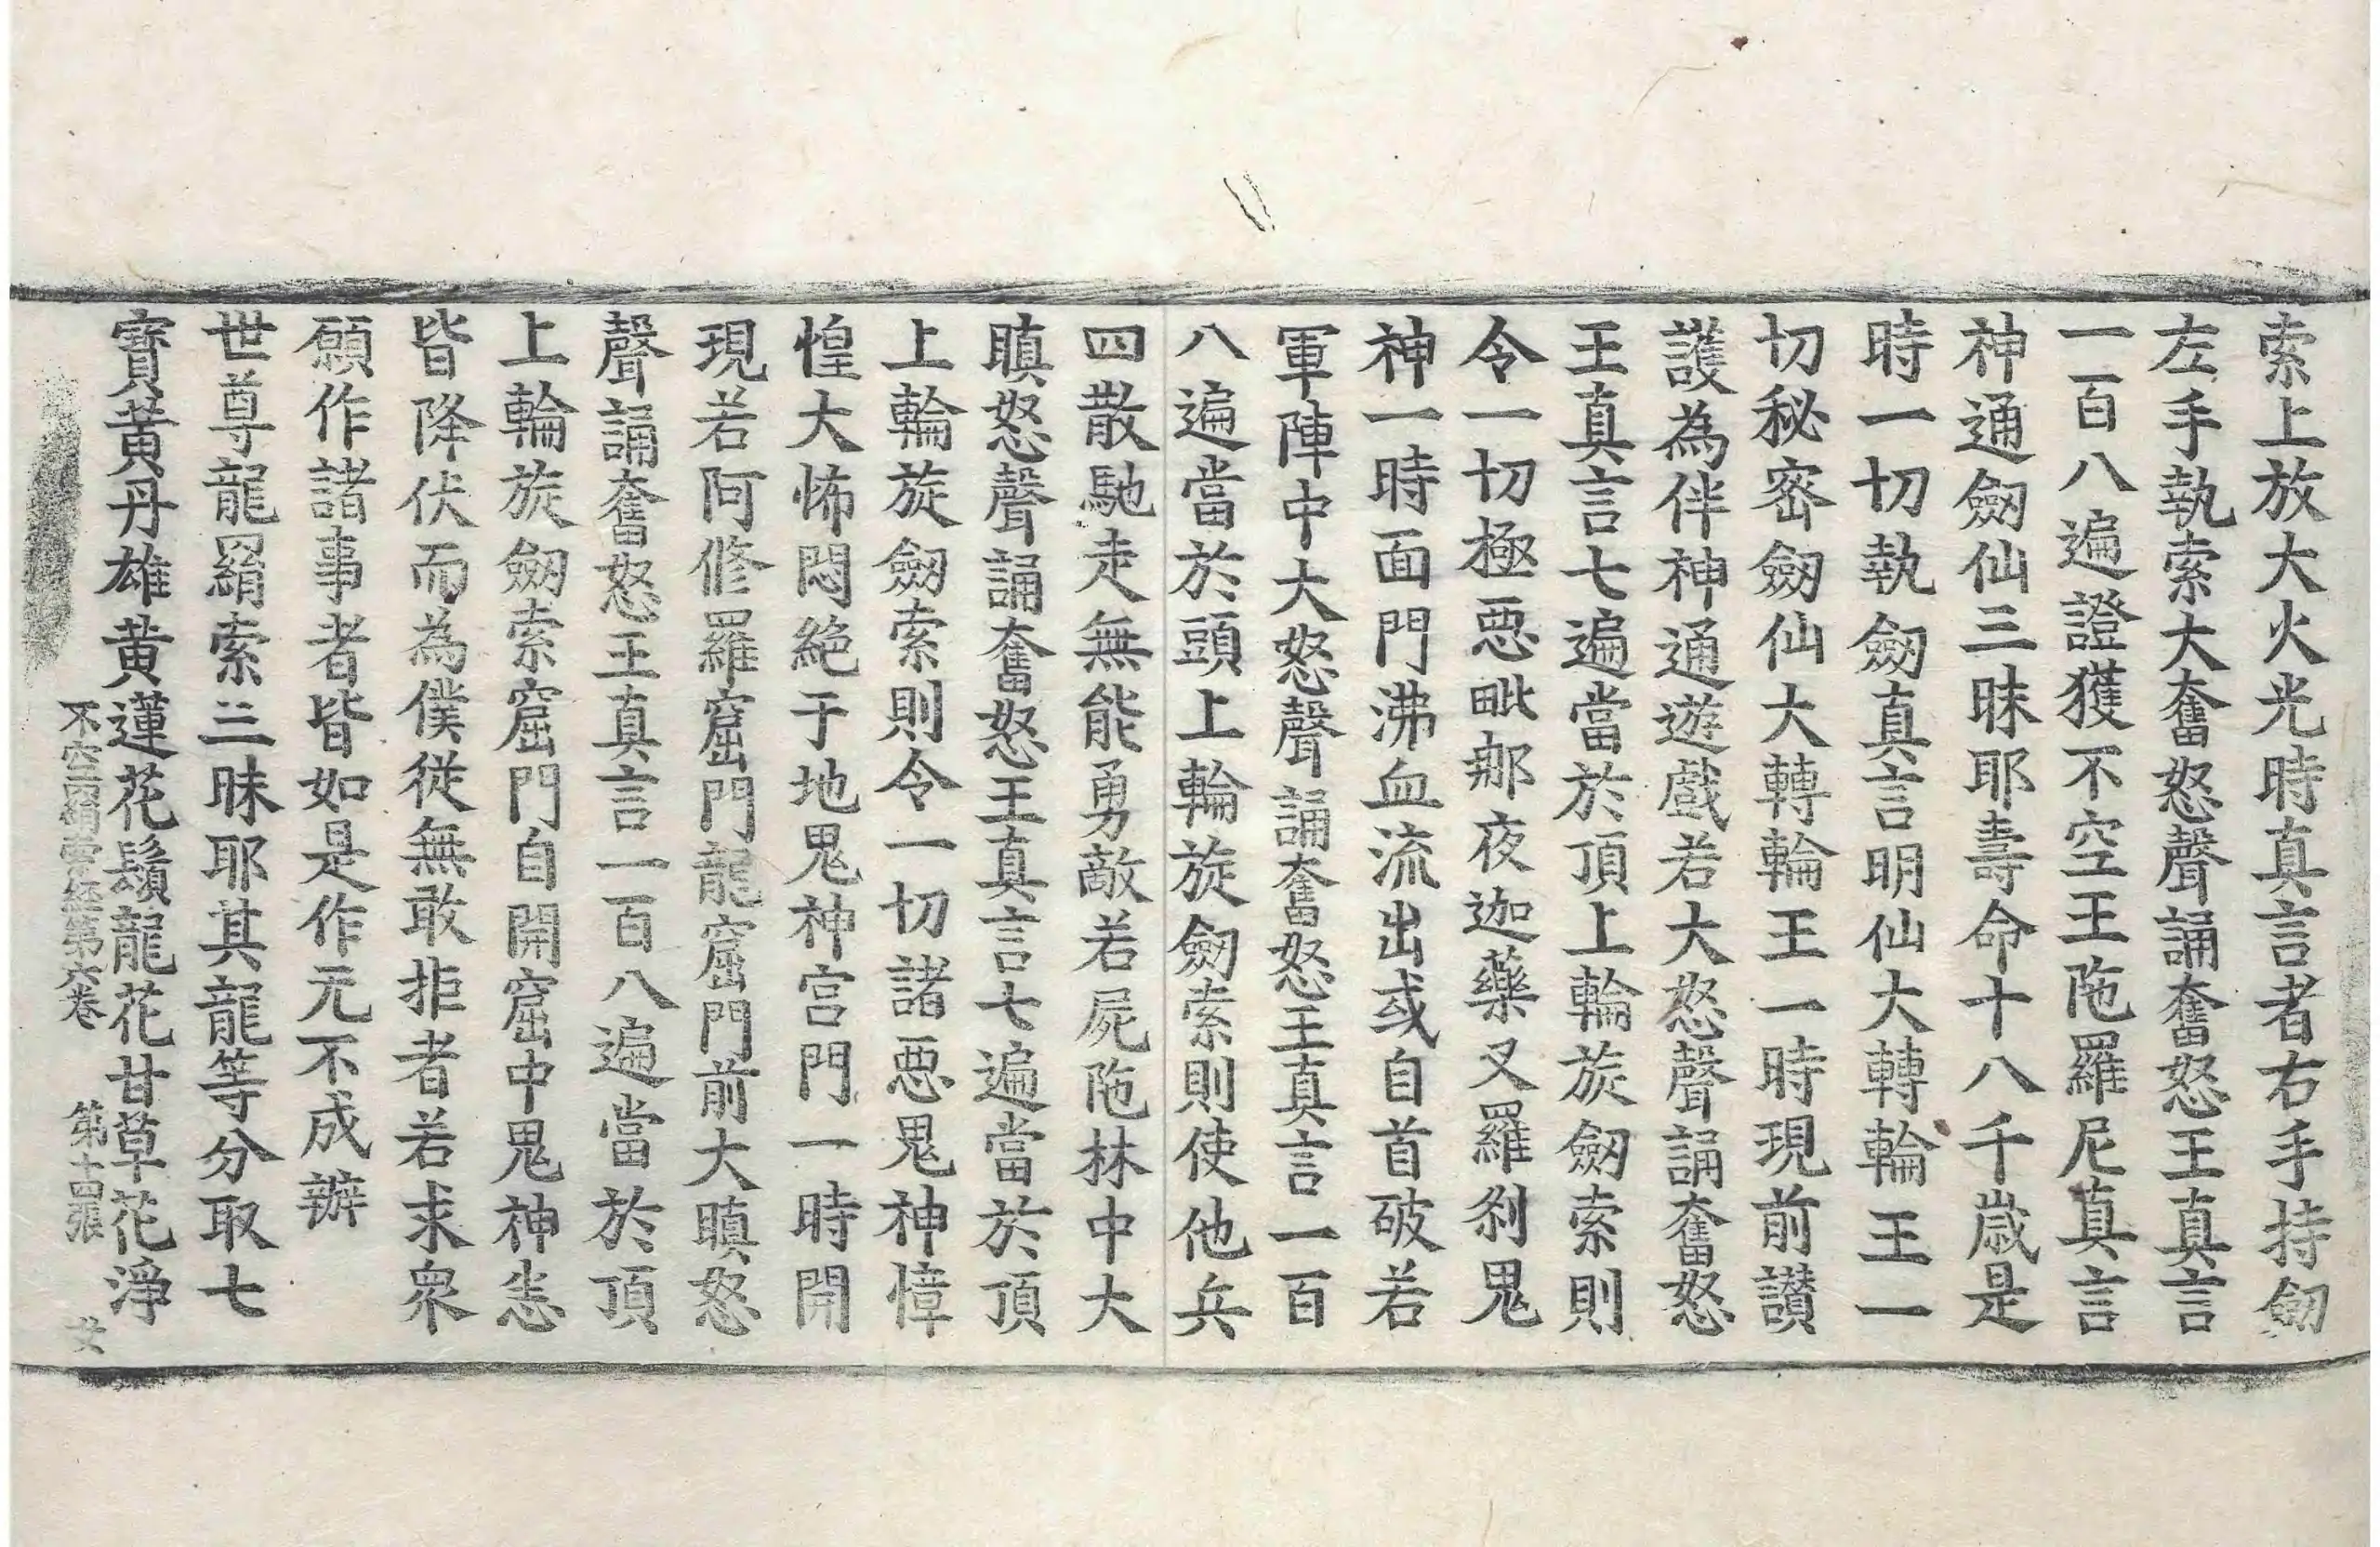 索上放大火光時真言者右手持劒
左手執索大奮怒聲誦奮怒王真言
一百八遍證獲不空王陁羅尼真言
神通劒仙三昧耶壽命十八千歲是
時一切執劒真言明仙大轉輪王一
切秘密劒仙大轉輪王一時現前讃
護為伴神通遊戲若大怒聲誦奮怒
王真言七遍當於頂上輪旋劒索則
令一切極惡毗那夜迦藥叉羅刹鬼
神一時面門沸血流出或自首破若
軍陣中大怒聲誦奮怒王真言一百
八遍當於頭上輪旋劒索則使他兵
四散馳走無能勇敵若屍陁林中大
瞋怒聲誦奮怒王真言七遍當於頂
上輪旋劒索則令一切諸惡鬼神慞
惶大怖悶絕于地鬼神宮門一時開
現若阿修羅窟門龍窟門前大瞋怒
聲誦奮怒王真言一百八遍當於頂
上輪旋劒索窟門自開窟中鬼神恙
皆降伏而為僕從無敢拒者若求衆
願作諸事者皆如是作无不成辦
世尊龍羂索三昧耶其龍等分取七
寶黃丹雄黃蓮花鬚龍花甘草花淨
不空羂索經第六卷 第十四張 女